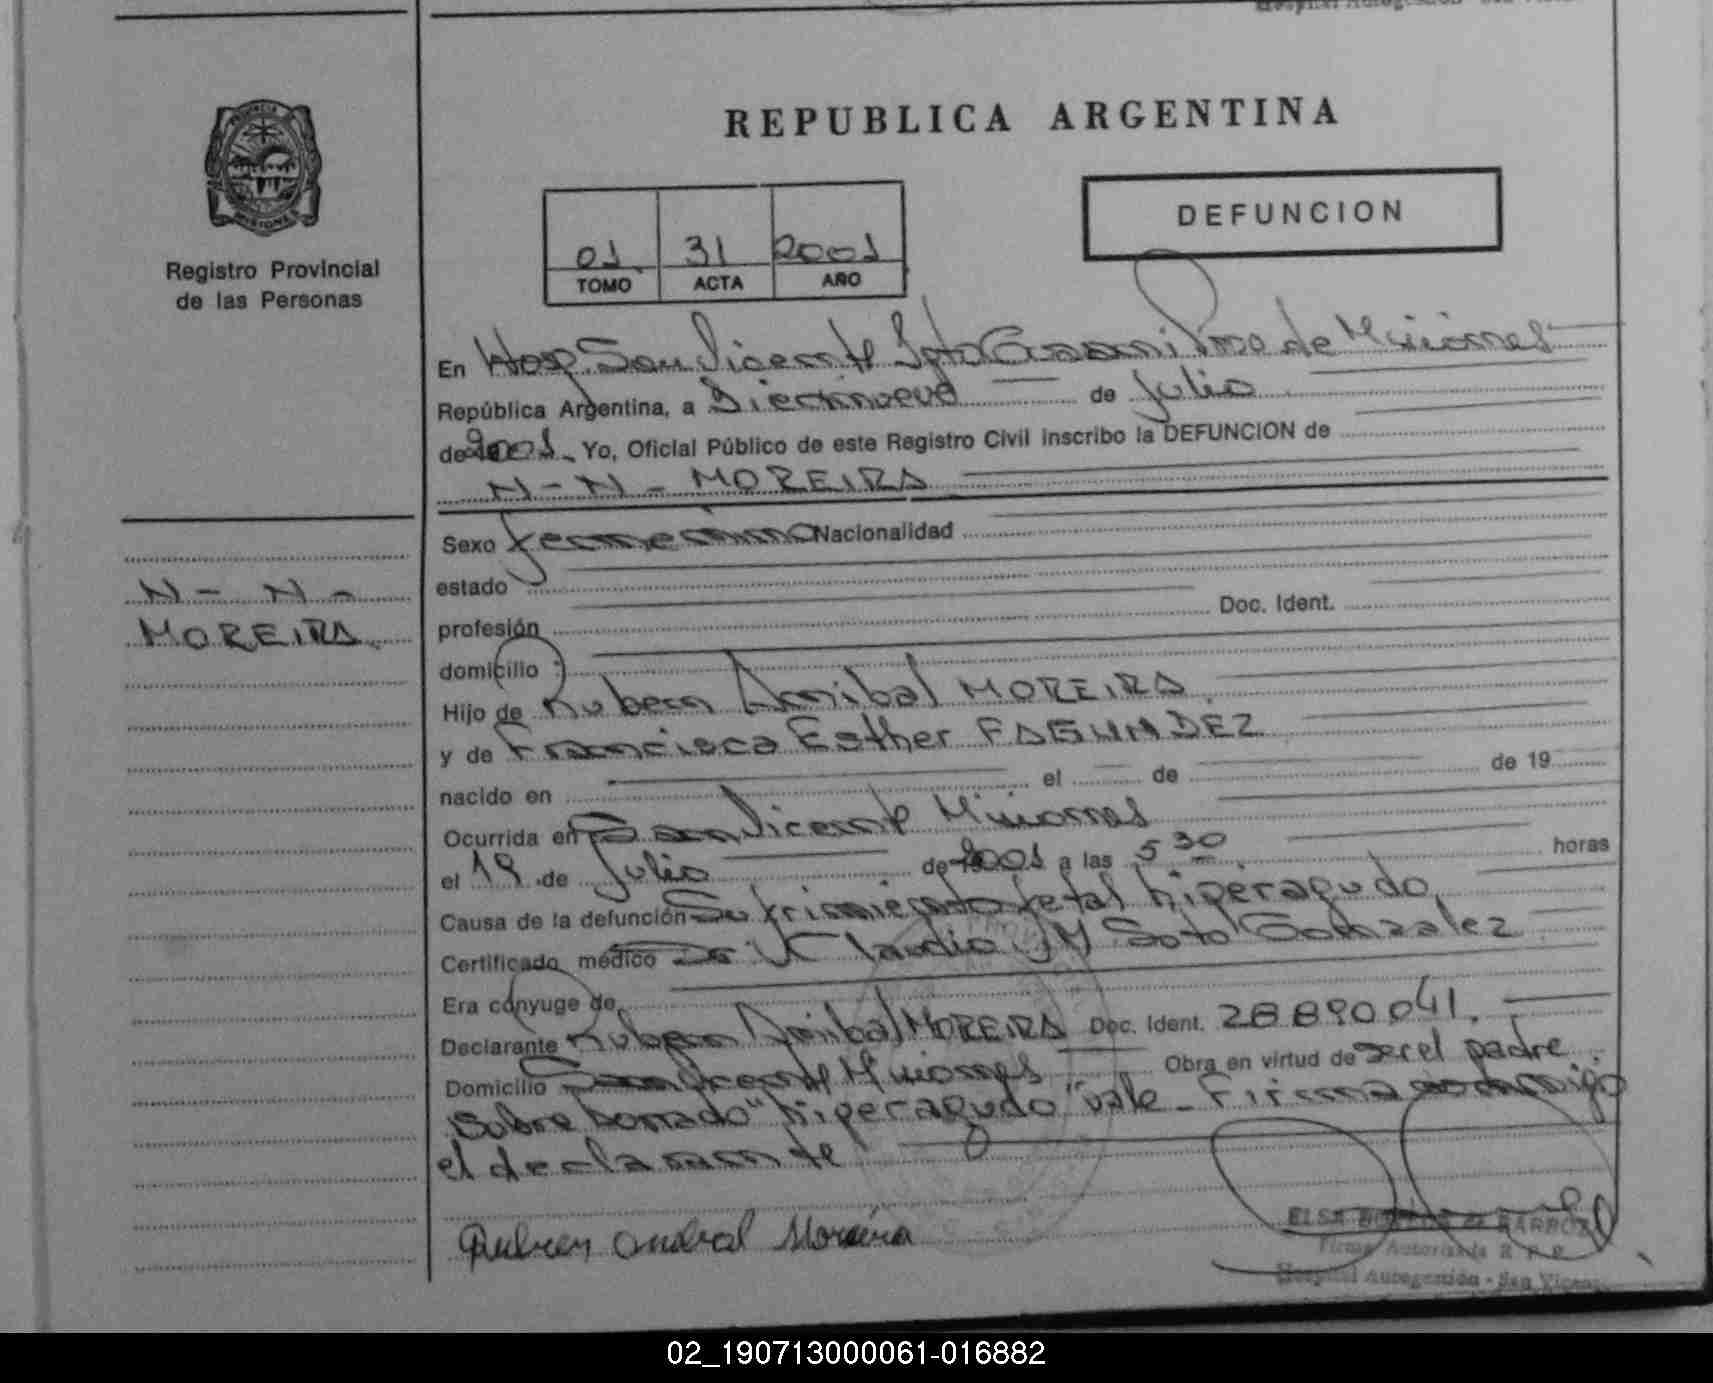 PROVINCIA
MISIONES
Registro Provincial
de las Personas
REPUBLICA ARGENTINA
DEFUNCION
01 31 2001
TOMO ACTA AÑO
En Hosp. San Vicente Dpto Guarani Pcia de Misiones
República Argentina, a Diecinueve de Julio
de 2001 Yo, Oficial Público de este Registro Civil inscribo la DEFUNCION de
N - N - MOREIRA
Sexo femenino Nacionalidad
estado
profesión Doc. Ident.
domicilio :
Hijo de Ruben Anibal MOREIRA
y de Francisca Esther FAGUNDEZ
nacido en el de de 19
Ocurrida en San Vicente Misiones
el 19 de Julio de 2001 a las 5 30 horas
Causa de la defunción Sufrimiento fetal hiperagudo
Certificado médico Dr. Claudio M Soto Gonzalez
Era cónyuge de
Declarante Ruben Anibal MOREIRA Doc. Ident. 28890041.
Domicilio San Vicente Misiones Obra en virtud de ser el padre.
Sobre borrado "hiperagudo" vale - Firma conmigo
el declarante
N - N -
MOREIRA
Moreira
ELSA de BARROZ
Firma Autorizada R. P. P.
Hospital Autogestión - San Vicente
02_190713000061-016882